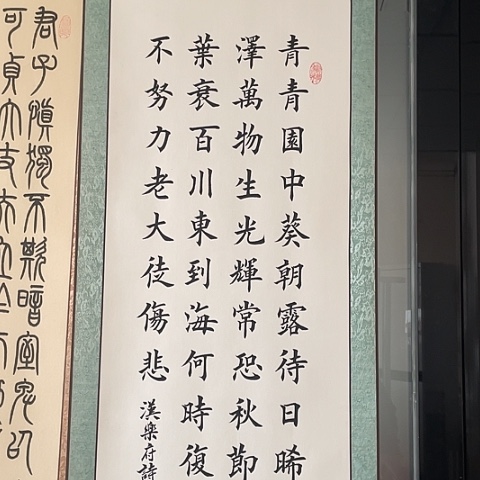 青青園中葵朝露待日晞
澤萬物生光輝常恐秋節
葉衰百川東到海何時復
不努力老大徒傷悲
漢樂府詩
君子慎獨不欺暗室卑以
可貞大